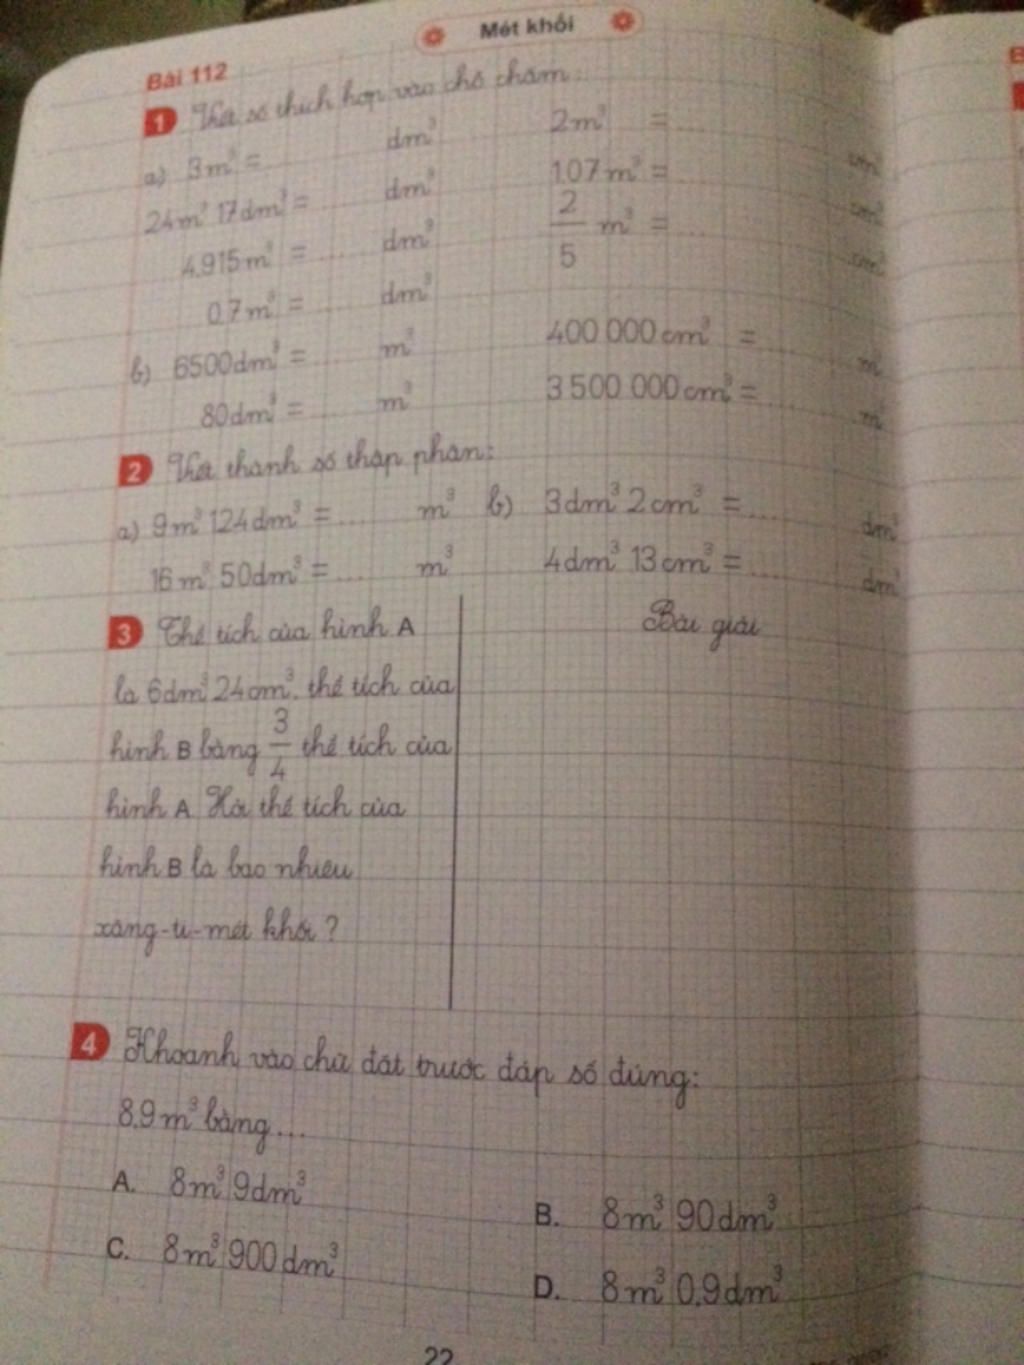 Mét khối
Bài 112
1 Viết số thích hợp vào chỗ chấm:
a) 3m³ = ... dm³ 2m³ = ... cm³
24m³ 17dm³ = ... dm³ 1,07m³ = ... cm³
4,915m³ = ... dm³ 2/5 m³ = ... cm³
0,7m³ = ... dm³
b) 6500dm³ = ... m³ 400 000cm³ = ... m³
80dm³ = ... m³ 3 500 000cm³ = ... m³
2 Viết thành số thập phân:
a) 9m³ 124dm³ = ... m³ b) 3dm³ 2cm³ = ... dm³
16m³ 50dm³ = ... m³ 4dm³ 13cm³ = ... dm³
3 Thể tích của hình A
là 6dm³ 24cm³, thể tích của
hình B bằng 3/4 thể tích của
hình A. Hỏi thể tích của
hình B là bao nhiêu
xăng-ti-mét khối?
Bài giải
4 Khoanh vào chữ đặt trước đáp số đúng:
8,9m³ bằng ...
A. 8m³ 9dm³
B. 8m³ 90dm³
C. 8m³ 900dm³
D. 8m³ 0,9dm³
22